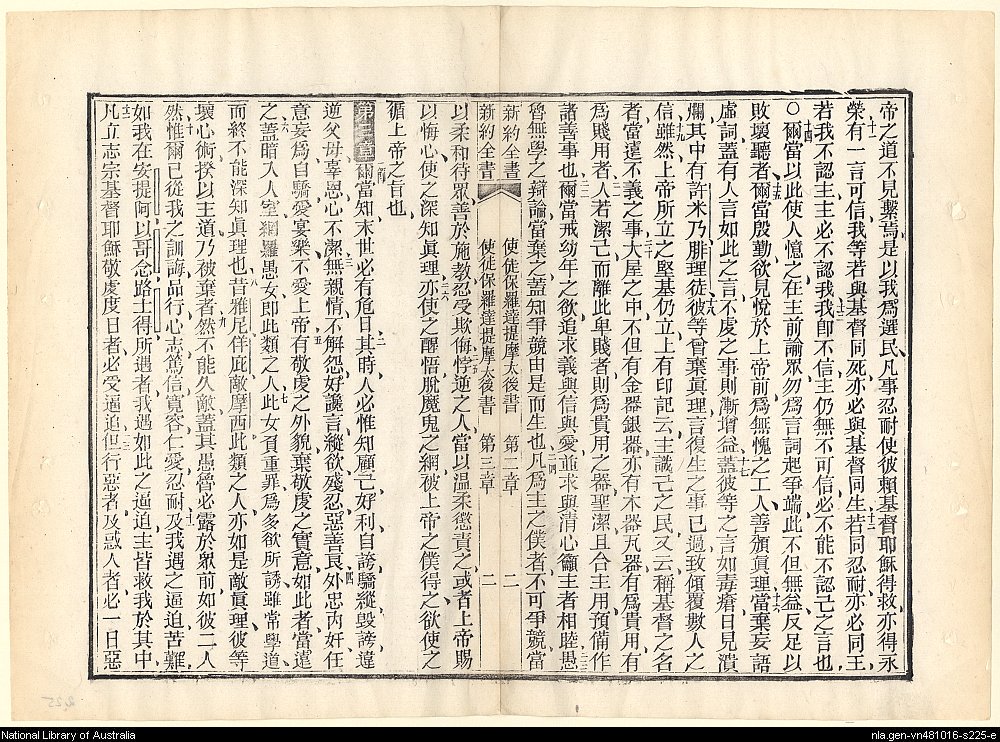 帝之道不見繫焉是以我爲選民凡事忍耐使彼賴基督耶穌得救亦得永
榮有一言可信我等若與基督同死亦必與基督同生若同忍耐亦必同王
若我不認主主必不認我我卽不信主仍無不可信必不能不認己之言也
○爾當以此使人憶之在主前諭眾勿爲言詞起爭端此不但無益反足以
敗壞聽者爾當殷勤欲見悅於上帝前爲無愧之工人善頒眞理當棄妄語
虛詞蓋有人言如此之言不虔之事則漸增益蓋彼等之言如毒瘡日見潰
爛其中有許米乃腓理徒彼等曾棄眞理言復生之事已過致傾覆數人之
信雖然上帝所立之堅基仍立上有印記云主識己之民又云稱基督之名
者當遠不義之事大屋之中不但有金器銀器亦有木器瓦器有爲貴用有
爲賤用者人若潔己而離此卑賤者則爲貴用之器聖潔且合主用預備作
諸善事也爾當戒幼年之欲追求義與信與愛並求與清心籲主者相睦愚
魯無學之辯論當棄之蓋知爭競由是而生也凡爲主之僕者不可爭競當
新約全書 使徒保羅達提摩太後書 第二章 二
新約全書 使徒保羅達提摩太後書 第三章 二
以柔和待眾善於施教忍受欺侮悖逆之人當以温柔懲責之或者上帝賜
以悔心使之深知眞理亦使之醒悟脫魔鬼之網被上帝之僕得之欲使之
循上帝之旨也
第三章爾當知末世必有危日其時人必惟知顧己好利自誇驕縱毀謗違
逆父母辜恩心不潔無親情不解怨好讒言縱欲殘忍惡善良外忠內奸任
意妄爲自驕愛宴樂不愛上帝有敬虔之外貌棄敬虔之實意如此者當遠
之蓋暗入人室網羅愚女卽此類之人此女負重罪爲多欲所誘雖常學道
而終不能深知眞理也昔雅尼佯庇敵摩西此類之人亦如是敵眞理彼等
壞心術揆以主道乃被棄者然不能久敵蓋其愚魯必露於眾前如彼二人
然惟爾已從我之訓誨品行心志篤信寬容仁愛忍耐及我遇之逼迫苦難
如我在安提阿以哥念路士得所遇者我遇如此之逼迫主皆救我於其中
凡立志宗基督耶穌敬虔度日者必受逼迫但行惡者及惑人者必一日惡
National Library of Australia
nla.gen-vn481016-s225-e